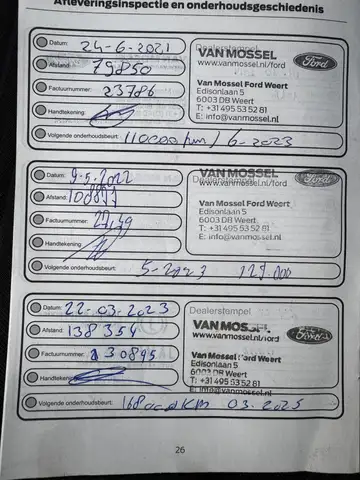 Afleveringsinspectie en onderhoudsgeschiedenis
Datum: 24-6-2021
Afstand: 79850
Factuurnummer: 23786
Handtekening:
Volgende onderhoudsbeurt: 110000/km / 6-2023
Dealerstempel
VAN MOSSEL
www.vanmossel.nl/ford
Ford
Van Mossel Ford Weert
Edisonlaan 5
6003 DB Weert
T: +31 495 53 52 81
E: info@vanmossel.nl
Datum: 9-5-2022
Afstand: 108877
Factuurnummer:
Handtekening:
Volgende onderhoudsbeurt: 5-2023 127.000
VAN MOSSEL
www.vanmossel.nl/ford
Van Mossel Ford Weert
Edisonlaan 5
6003 DB Weert
T: +31 495 53 52 81
E: info@vanmossel.nl
Datum: 22-03-2023
Afstand: 138354
Factuurnummer: 130895
Handtekening:
Volgende onderhoudsbeurt: 168000KM 03-2025
Dealerstempel
VAN MOSSEL
www.vanmossel.nl/ford
Ford
Van Mossel Ford Weert
Edisonlaan 5
6003 DB Weert
T: +31 495 53 52 81
E: info@vanmossel.nl
26